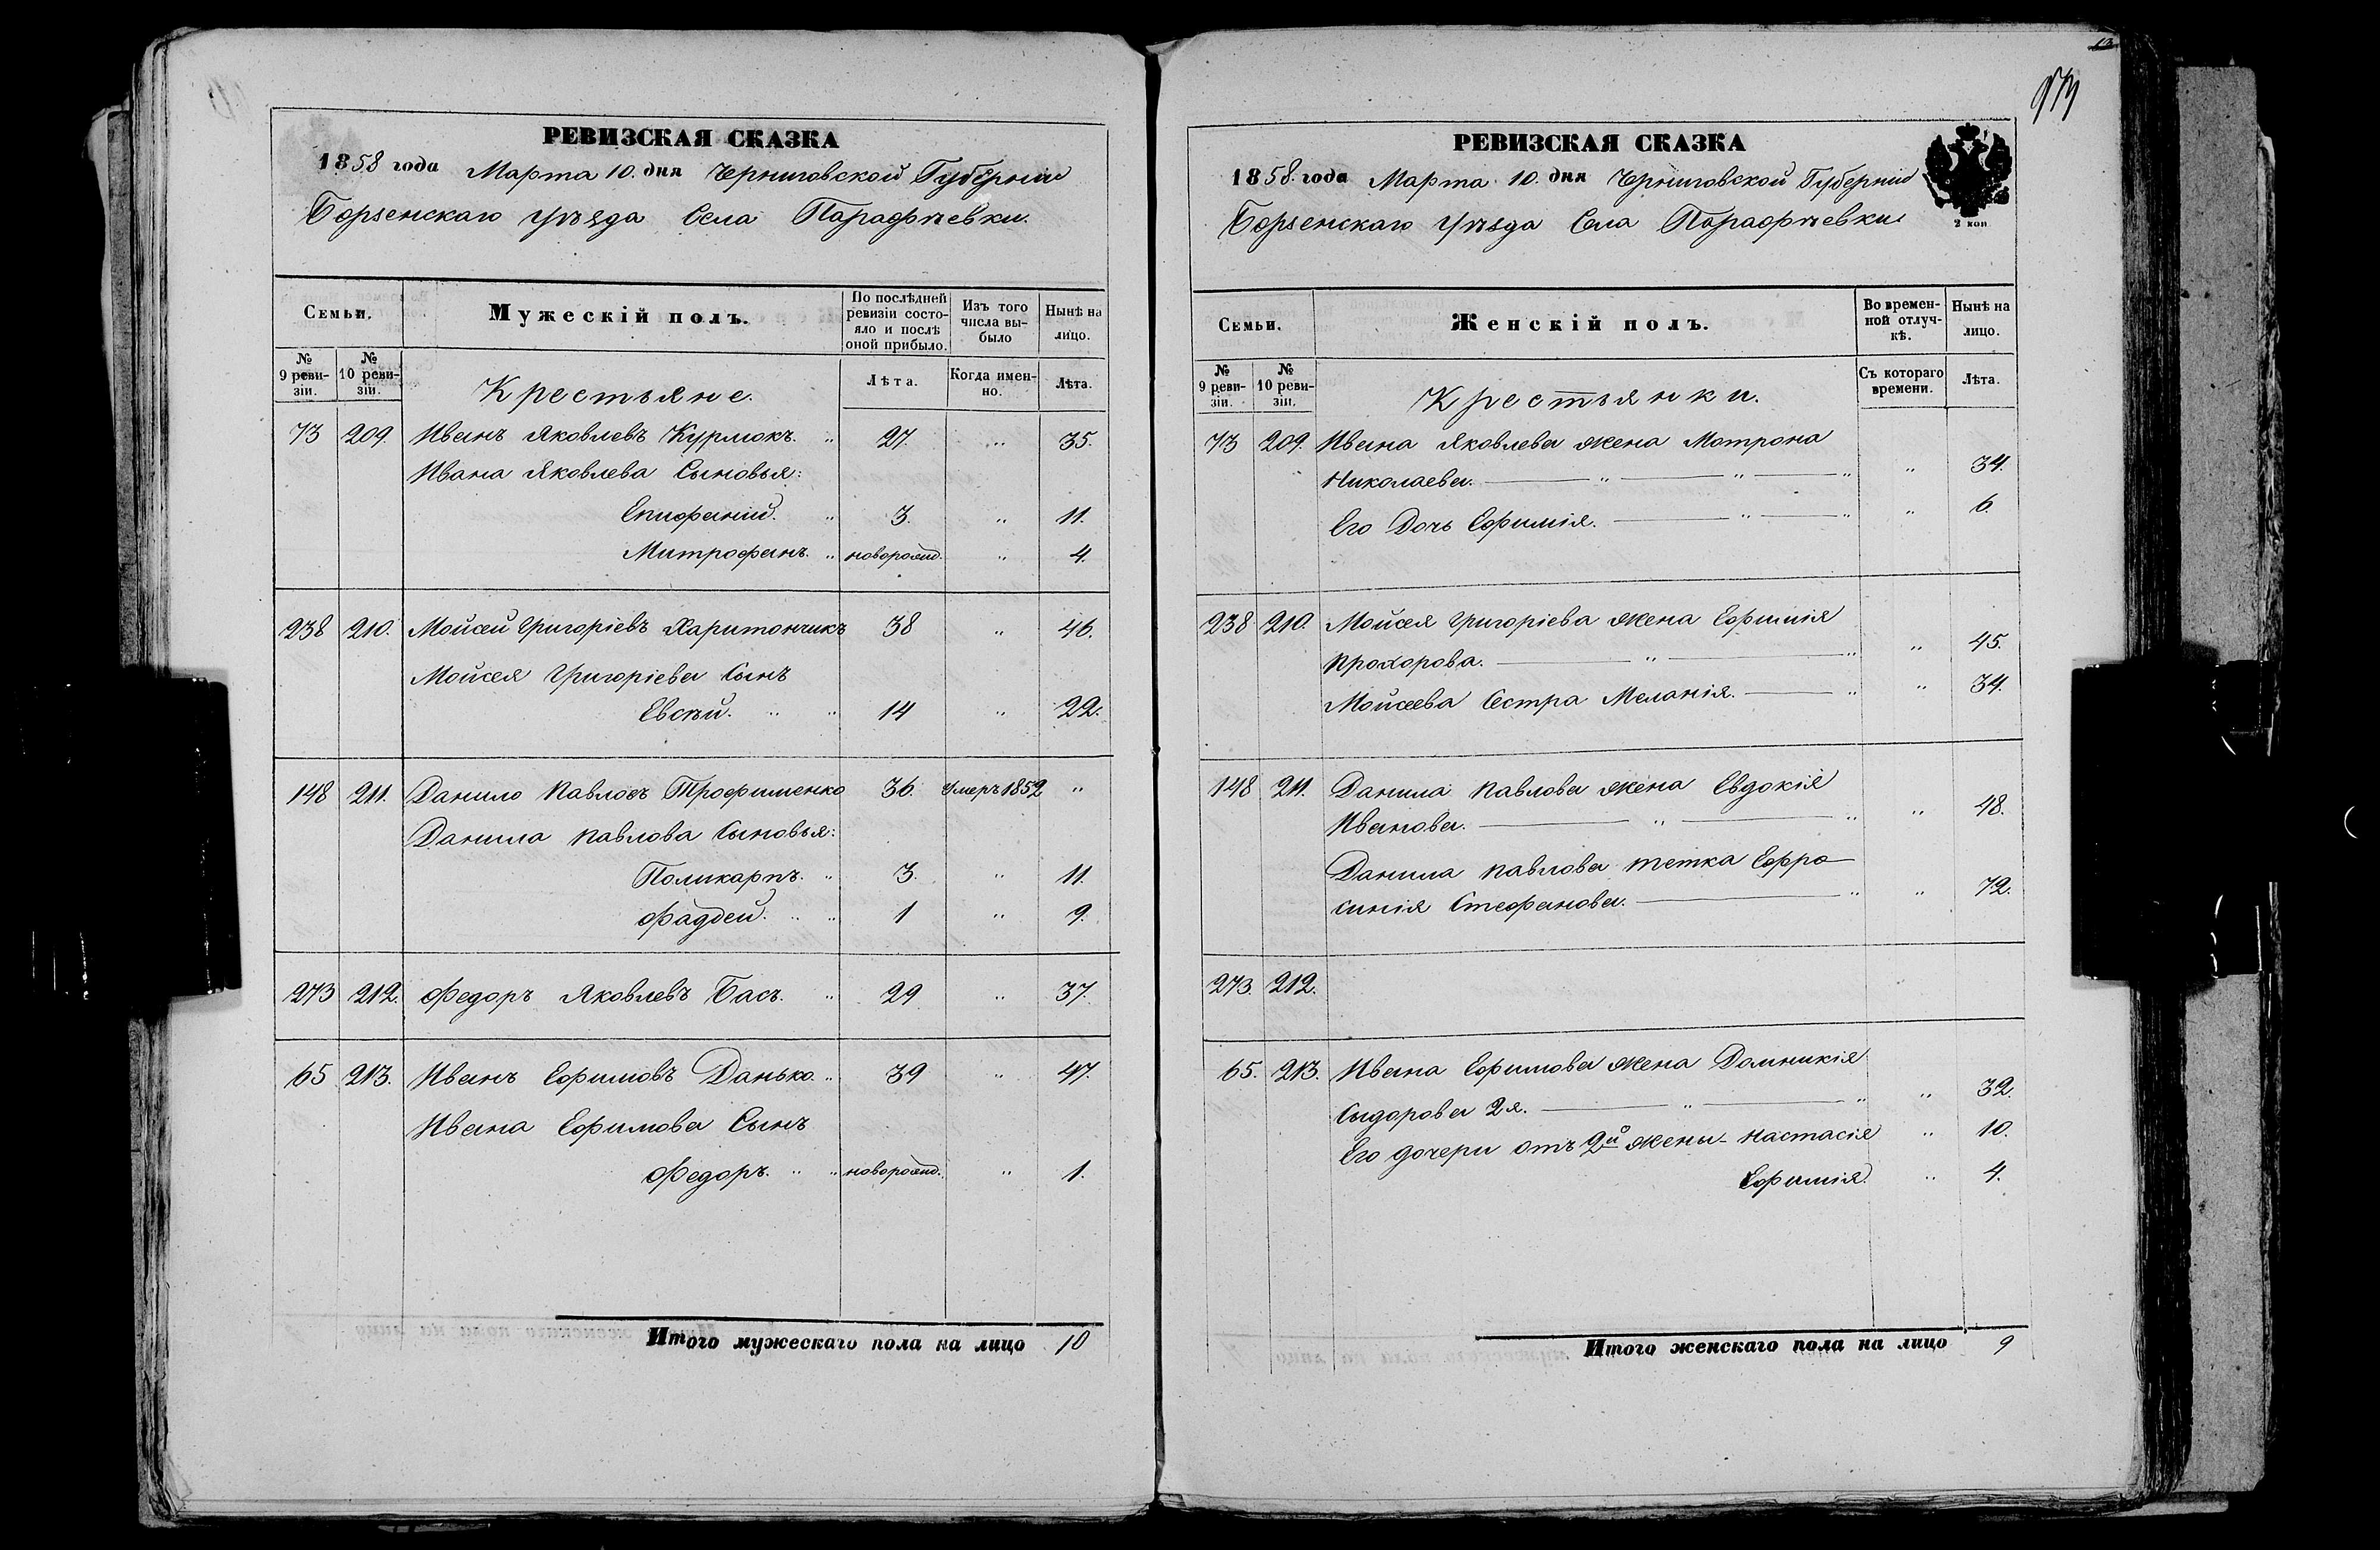 РЕВИЗСКАЯ СКАЗКА
1858 года Марта 10. дня Черниговской Губерніи
Борзенскаго Уѣзда Села Парафѣевки.
Семьи.
Мужескій полъ.
По послѣдней ревизіи состояло и послѣ оной прибыло.
Изъ того числа выбыло
Нынѣ на лицо.
№ 9 ревизіи.
№ 10 ревизіи.
Крестьяне.
Лѣта.
Когда именно.
Лѣта.
73 209. Иванъ Яковлевъ Курмокъ. „ 27. „ 35.
Ивана Яковлева Сыновья:
Епифаній. „ 3. „ 11.
Митрофанъ. „ новорожд. „ 4.
238 210. Мойсей Григоріевъ Харитончикъ 38 „ 46.
Мойсея Григоріева Сынъ
Евсѣй. „ „ 14 „ 22.
148 211. Данило Павловъ Трофименко 36. Умеръ 1852 „
Данила Павлова Сыновья:
Поликарпъ. „ 3. „ 11.
Фаддей. „ „ 1 „ 9.
273 212. Федоръ Яковлевъ Басъ. „ 29 „ 37.
65 213. Иванъ Ефимовъ Данько. „ 39 „ 47.
Ивана Ефимова Сынъ
Федоръ. „ „ новорожд. „ 1.
Итого мужескаго пола на лицо 10
РЕВИЗСКАЯ СКАЗКА
1858 года Марта 10. дня Черниговской Губерніи
Борзенскаго Уѣзда Села Парафѣевки
2 коп
Семьи.
Женскій полъ.
Во временной отлучкѣ.
Нынѣ на лицо.
№ 9 ревизіи.
№ 10 ревизіи.
Крестьянки.
Съ котораго времени.
Лѣта.
73 209. Ивана Яковлева жена Мотрона
Николаева. — „ — „ — „ „ 34.
Его Дочь Ефимія. — „ — „ „ 6.
238 210. Мойсея Григоріева жена Ефимія
Прохорова. — „ — „ „ 45.
Мойсеева Сестра Меланія. — „ „ 34.
148 211. Данила Павлова жена Евдокія
Иванова. — „ — „ „ 48.
Данила Павлова тетка Ефро-
синія Стефанова. — „ „ 72.
273. 212.
65. 213. Ивана Ефимова жена Домникія
Сыдорова 2я. — „ — „ „ 32.
Его дочери отъ 2й жены - Настасія „ 10.
Ефимія. „ 4.
Итого женскаго пола на лицо 9